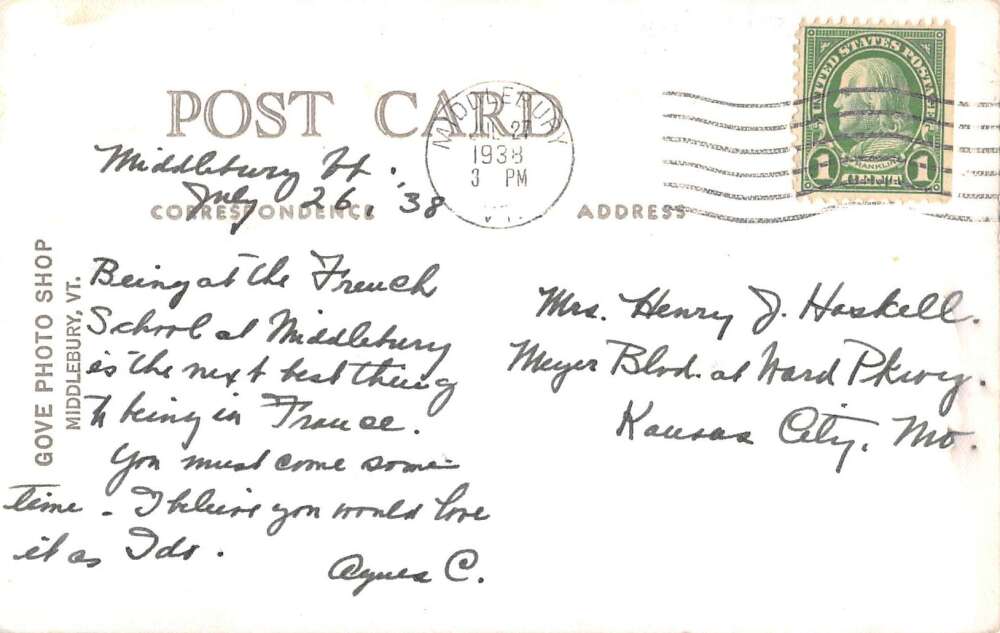 POST CARD
MIDDLEBURY
JUL 27
1938
3 PM
VT.
UNITED STATES POSTAGE
FRANKLIN
1 1
Middlebury Vt.,
July 26, '38
CORRESPONDENCE
ADDRESS
GOVE PHOTO SHOP
MIDDLEBURY, VT.
Being at the French
School at Middlebury
is the next best thing
to being in France.
You must come some-
time - I believe you would love
it as I do.
Agnes C.
Mrs. Henry J. Haskell.
Meyer Blvd. at Ward Pkwy.
Kansas City, Mo.